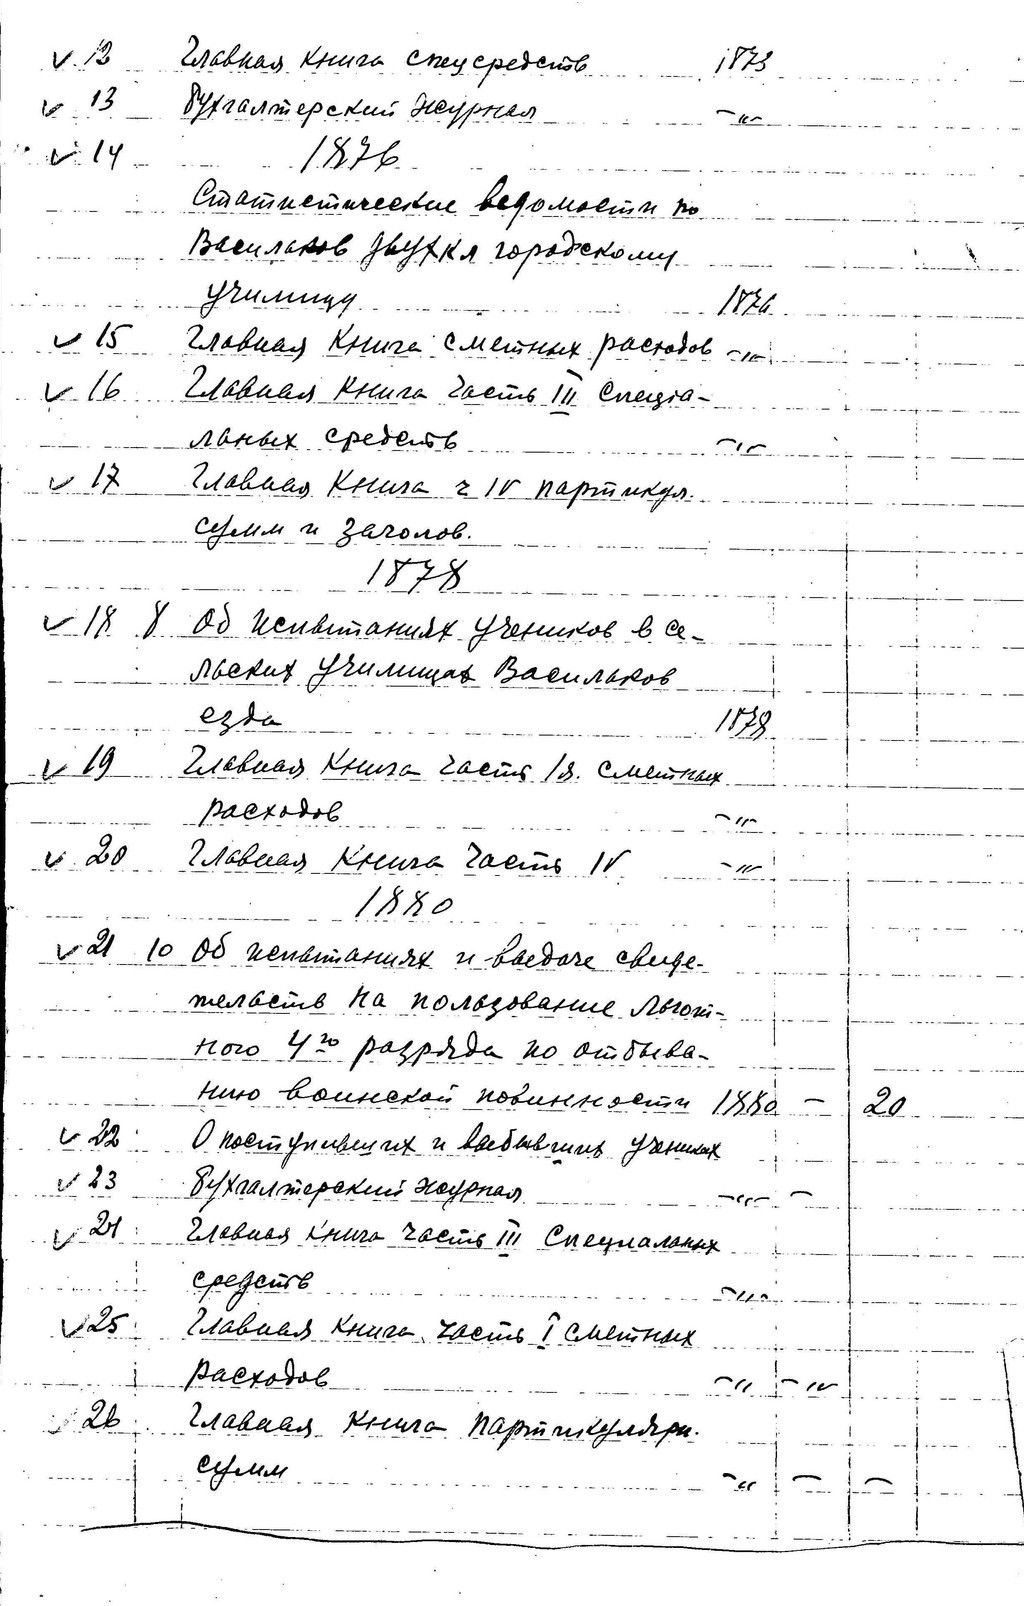 ✓ 12 Главная книга спецсредств 1873
✓ 13 Бухгалтерский журнал -"-
✓ 14 1876
Статистические ведомости по
Васильков двухкл городскому
училищу 1876
✓ 15 Главная книга сметных расходов -"-
✓ 16 Главная книга часть III специа-
льных средств -"-
✓ 17 Главная книга ч IV партикул.
сумм и заголов.
1878
✓ 18 8 Об испытаниях учеников в се-
льских училищах Васильков
езда 1878
✓ 19 Главная книга часть 1я. сметных
расходов -"-
✓ 20 Главная книга часть IV -"-
1880
✓ 21 10 Об испытаниях и выдаче свиде-
тельств на пользование льгот-
ного 4го разряда по отбыва-
нию воинской повинности 1880 - 20
✓ 22 О поступивших и выбывших учениках
✓ 23 Бухгалтерский журнал -"- -
✓ 24 Главная книга часть III Специальных
средств -"-
✓ 25 Главная книга часть I сметных
расходов -"- -"-
✓ 26 Главная книга партикулярн.
сумм -"- - -